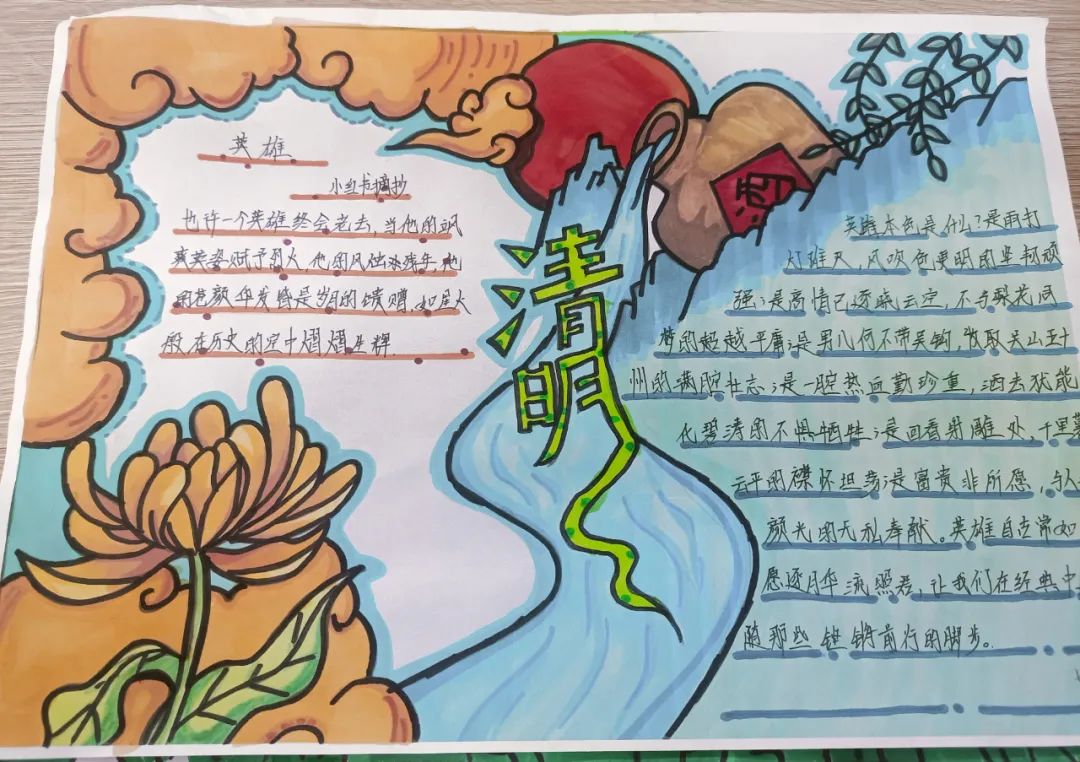 英雄
小红书摘抄
也许一个英雄终会老去,当他的飒
爽英姿赋予烈火,他的风烛残年,他
的苍颜华发皆是岁月的馈赠,如星火
般在历史的空中熠熠生辉.
清明
酒
英雄本色是什么?是雨打
灯难灭,风吹色更明的坚韧顽
强;是高情已逐晓云空,不与梨花同
梦的超越平庸;是男儿何不带吴钩,收取关山五十
州的满腔壮志;是一腔热血勤珍重,洒去犹能
化碧涛的不惧牺牲;是回看射雕处,千里暮
云平的襟怀坦荡;是富贵非所愿,与人
颜光的无私奉献。英雄自古常如
愿逐月华流照君,让我们在经典中
随那些铿锵前行的脚步。